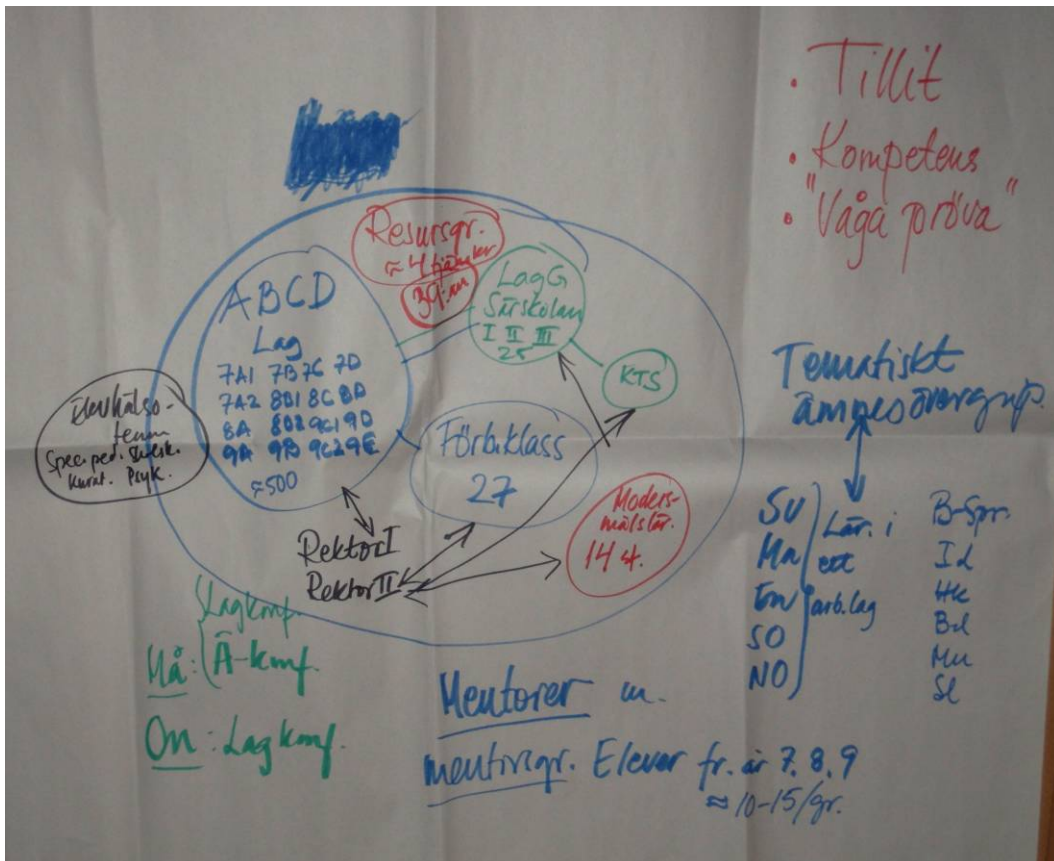 • Tillit
• Kompetens
• "Våga pröva"
Resursgr.
≈ 4 tjänster
39:an
ABCD
Lag
7A1 7B 7C 7D
7A2 8B1 8C 8D
8A 8B2 9C1 9D
9A 9B 9C2 9E
≈500
LagG
Särskolan
I II III
25
KTS
Elevhälso-
team
Specped. Syv
Kurat. Psyk.
Förb.klass
27
Moders-
målslär.
14 st.
Rektor I
Rektor II
Må: Lagkonf.
Ä-konf.
On: Lagkonf.
Tematiskt
ämnesövergrip.
SV
Ma
En
SO
NO
Lär. i
ett
arb.lag
B-Spr.
Id
Hk
Bd
Mu
Sl
Mentorer m.
mentorsgr. Elever fr. år 7, 8, 9
≈ 10-15/gr.